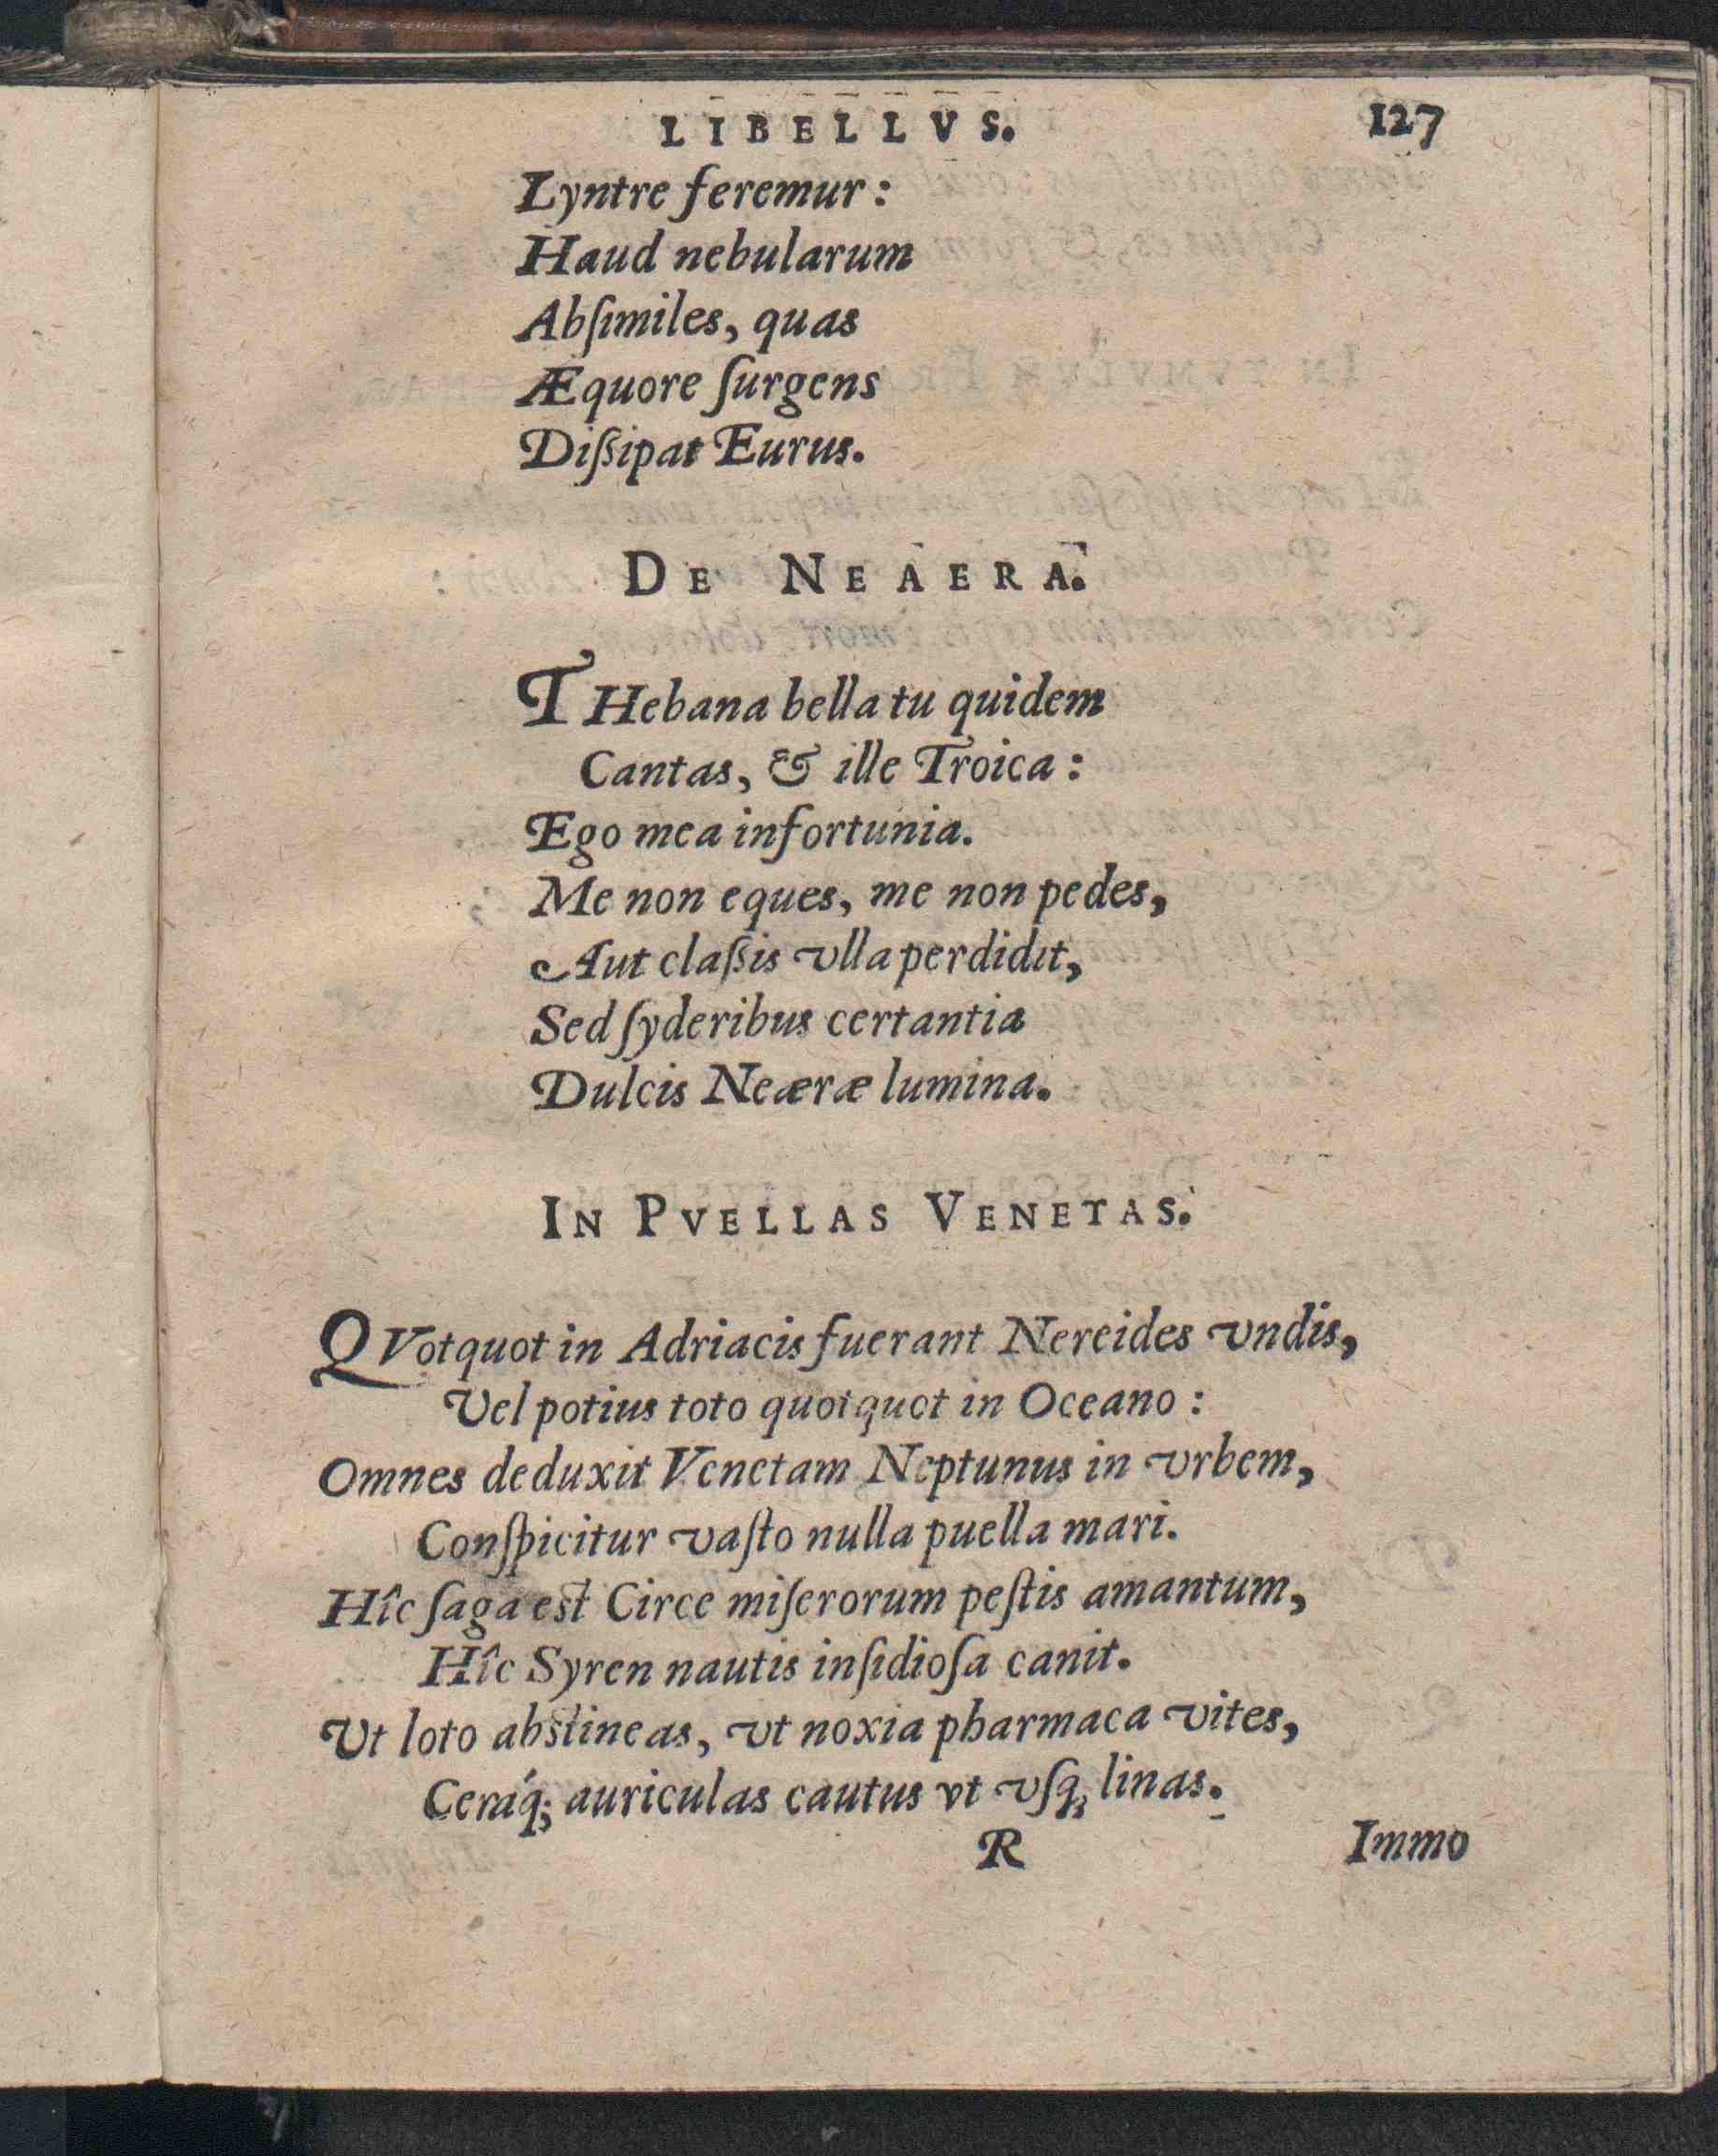 LIBELLVS. 127
Lyntre feremur:
Haud nebularum
Abſimiles, quas
Æquore ſurgens
Diſſipat Eurus.
DE NEAERA.
THebana bella tu quidem
Cantas, & ille Troica:
Ego mea infortunia.
Me non eques, me non pedes,
Aut claſſis vlla perdidit,
Sed ſyderibus certantia
Dulcis Neæræ lumina.
IN PVELLAS VENETAS.
QVotquot in Adriacis fuerant Nereides vndis,
Vel potius toto quotquot in Oceano:
Omnes deduxit Venetam Neptunus in vrbem,
Conſpicitur vaſto nulla puella mari.
Hîc ſaga est Circe miſerorum peſtis amantum,
Hîc Syren nautis inſidioſa canit.
Vt loto abstineas, vt noxia pharmaca vites,
Ceráq; auriculas cautus vt vſq; linas.
R Immo